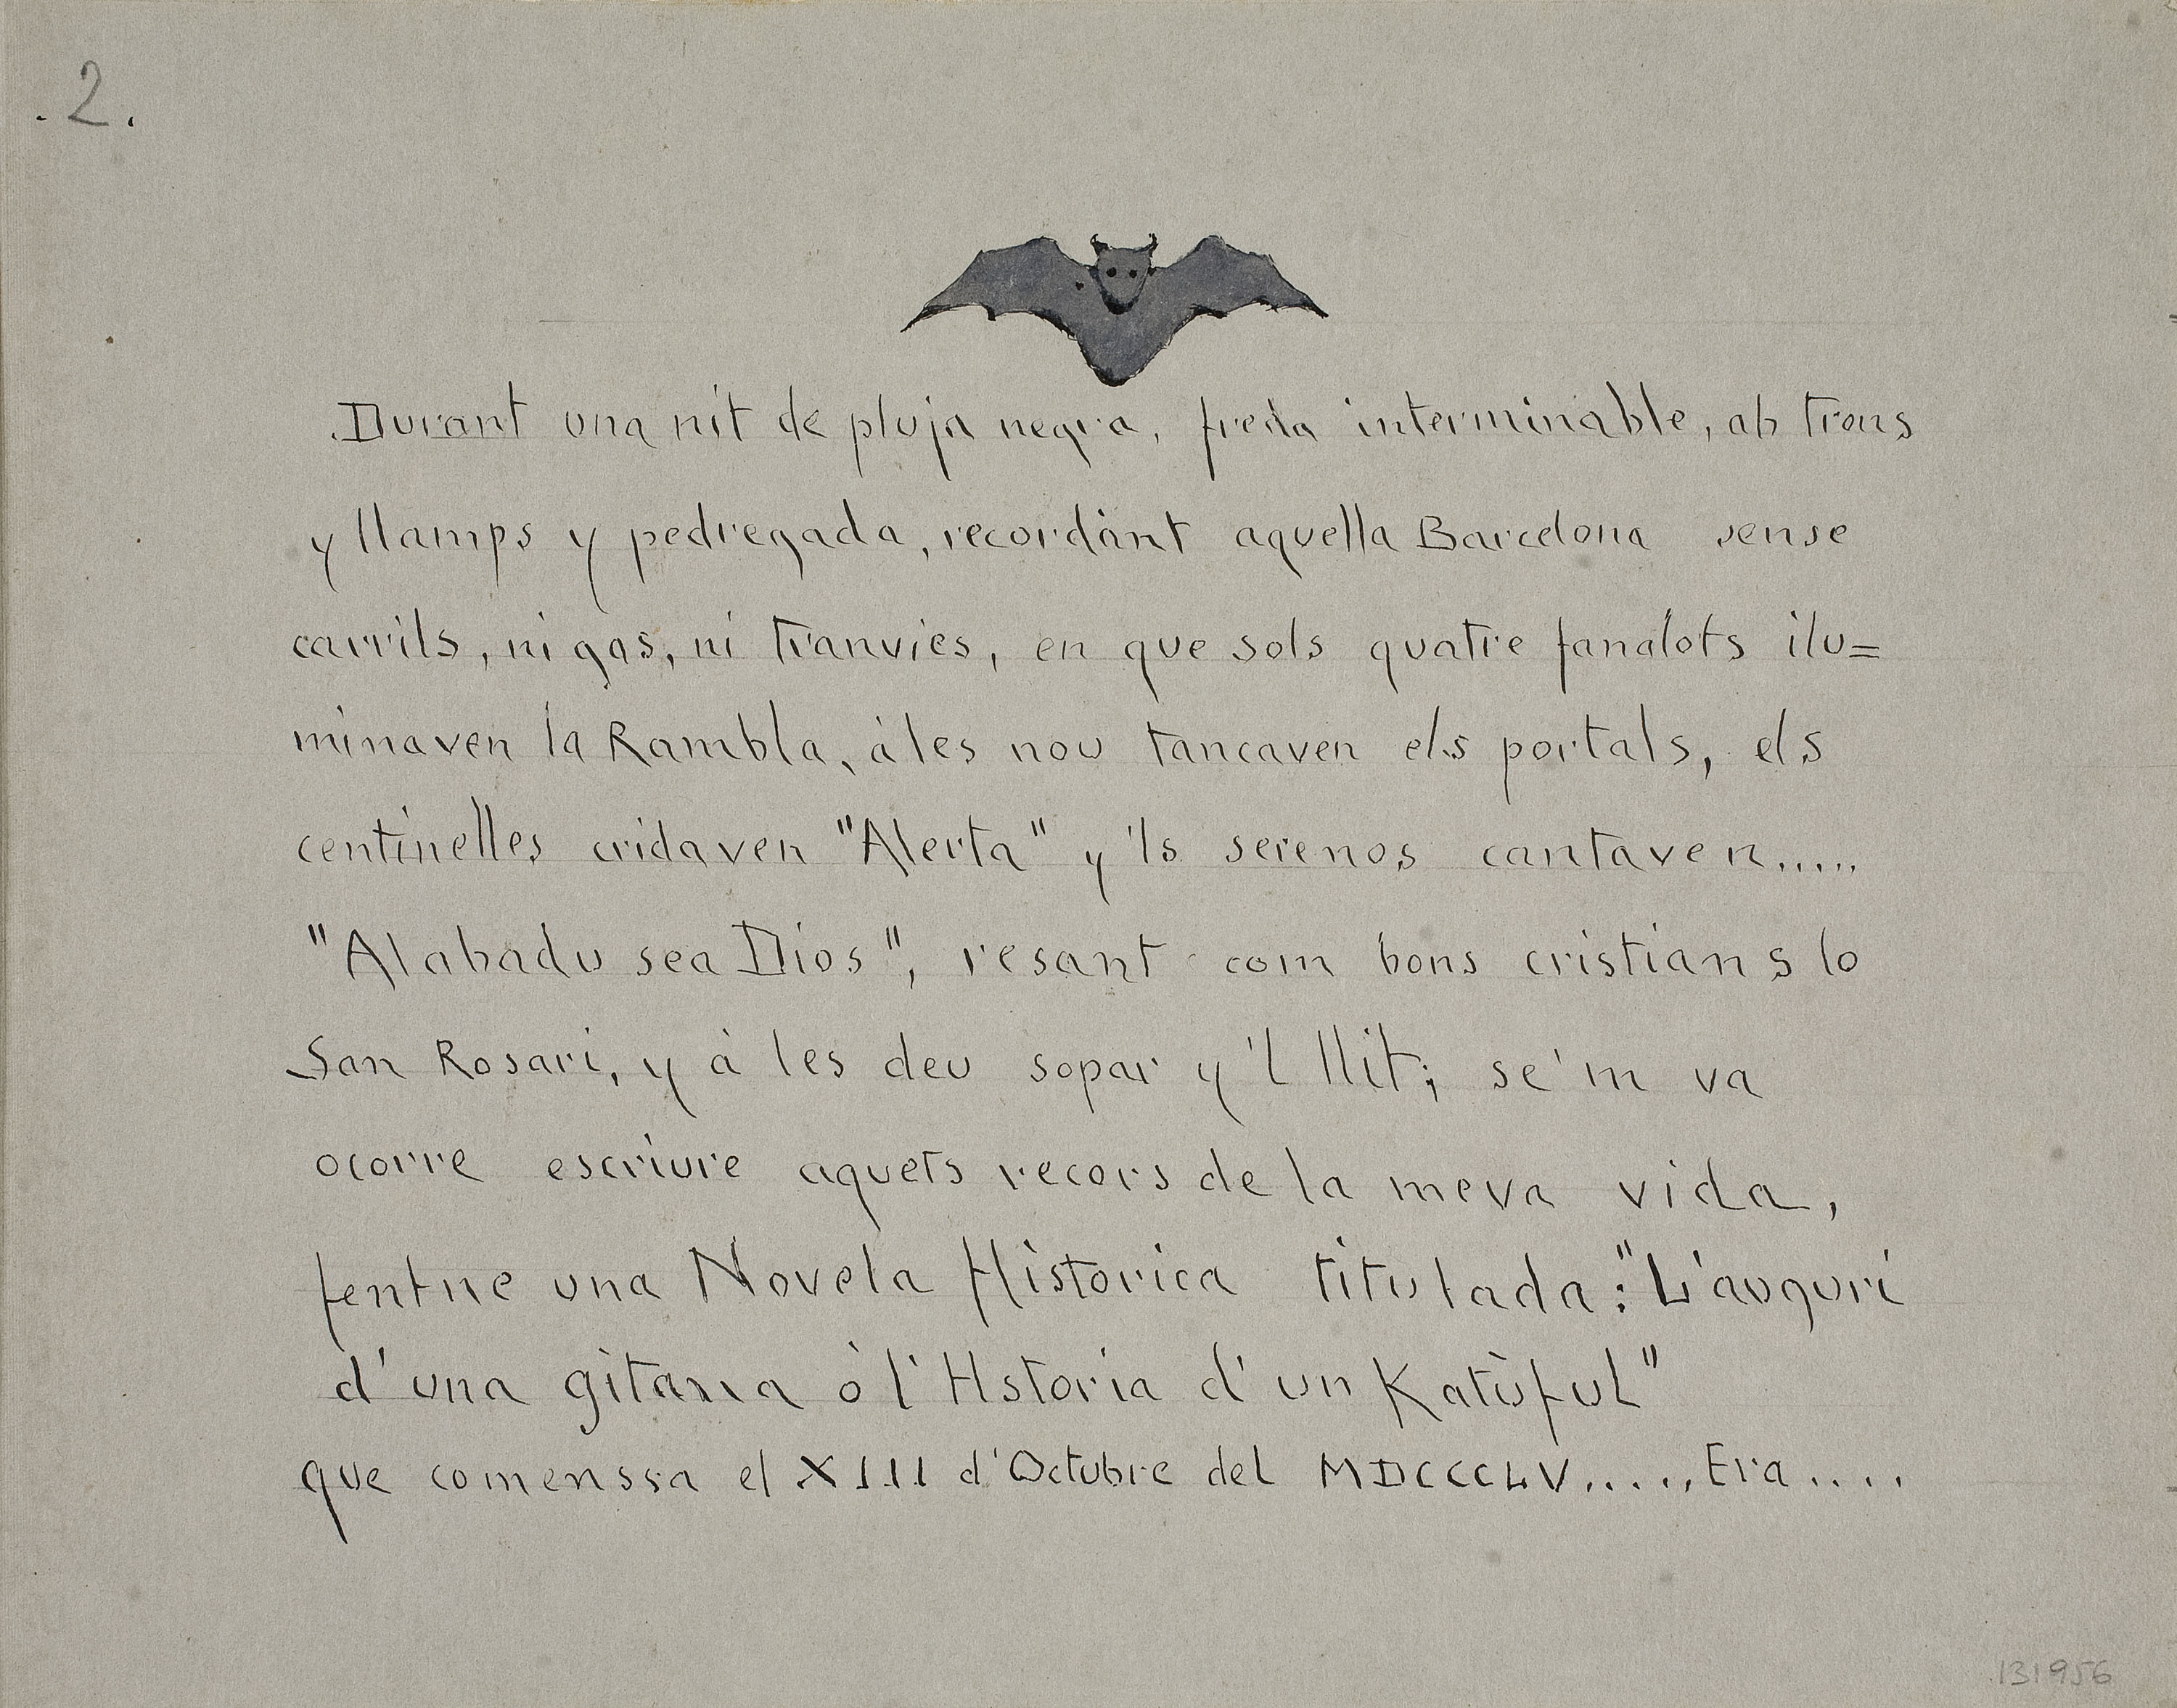 .2.
Durant una nit de pluja negra, freda interminable, ab trons
y llamps y pedregada, recordant aquella Barcelona sense
carrils, ni gas, ni tranvies, en que sols quatre fanalots ilu=
minaven la Rambla, à les nou tancaven els portals, els
centinelles cridaven "Alerta" y 'ls serenos cantaven.....
"Alabadu sea Dios", resant com bons cristians lo
San Rosari, y à les deu sopar y 'l llit; se'm va
ocorre escriure aquets recors de la meva vida,
fentne una Novela Historica titulada: "L'auguri
d'una gitana ò l'Hstoria d'un Katùful"
que comenssa el XIII d'Octubre del MDCCCLV..... Era....
131956